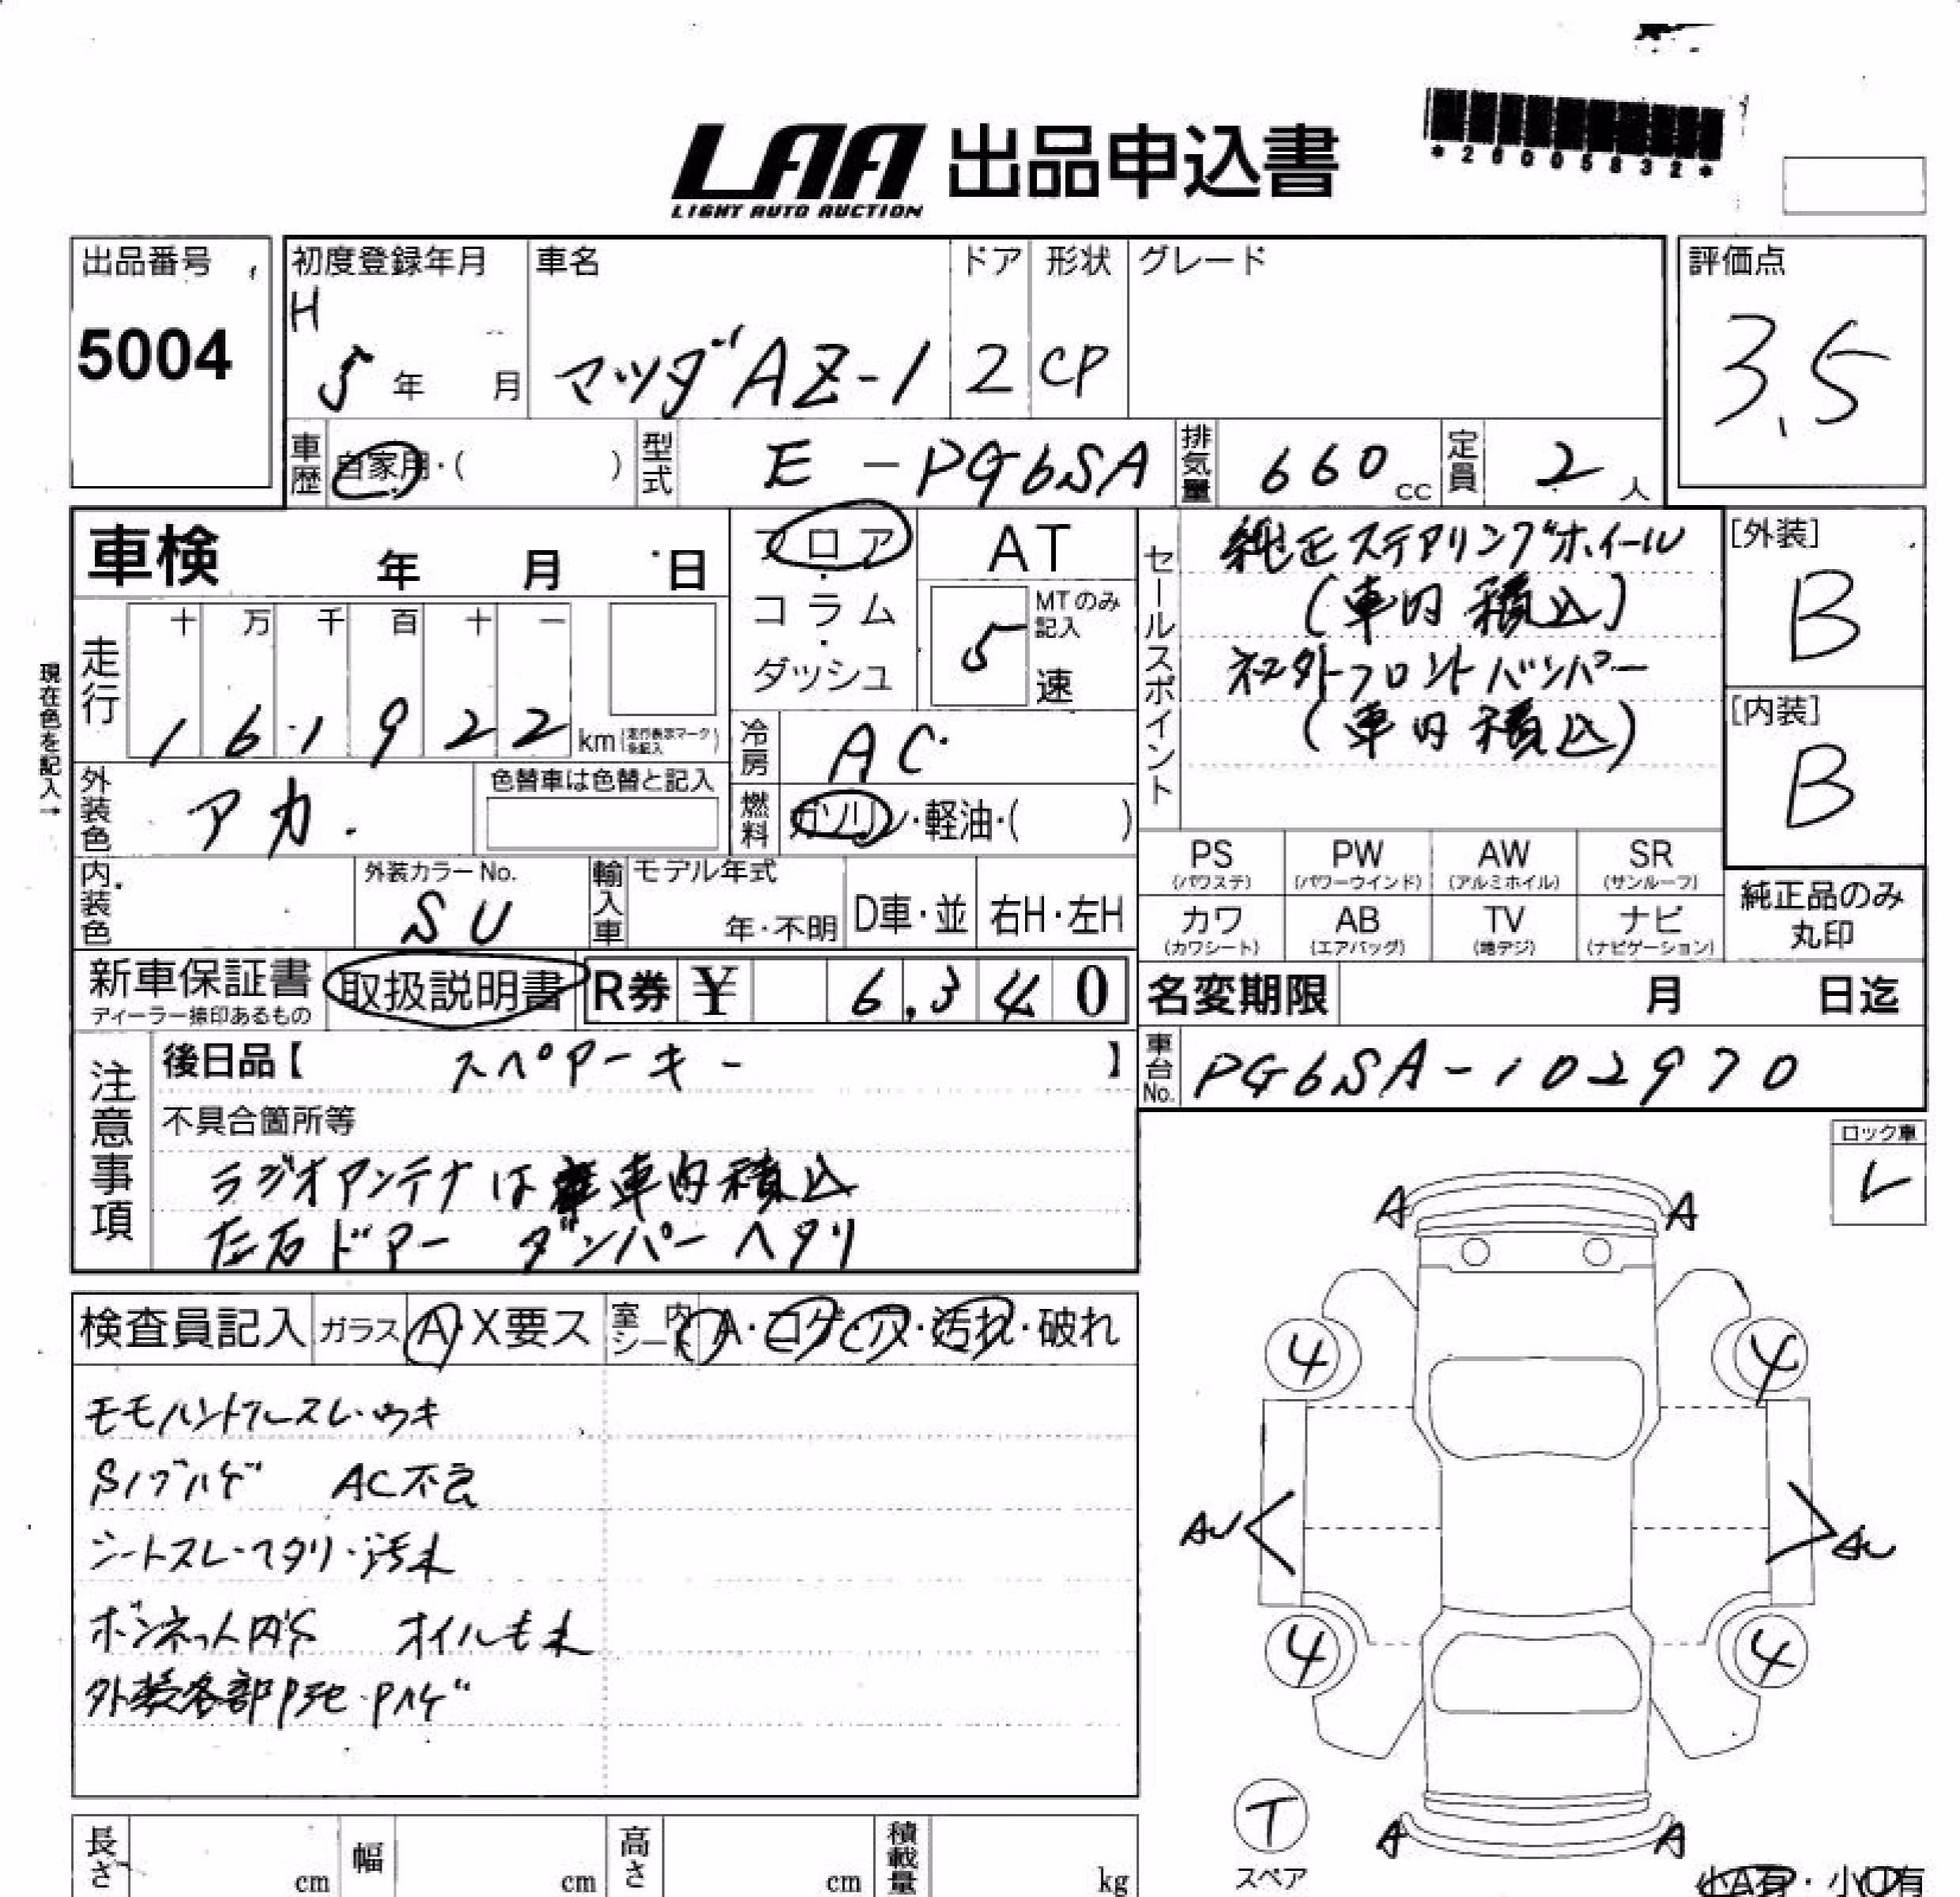 LAA 出品申込書
LIGHT AUTO AUCTION
*26005832*
出品番号
5004
初度登録年月
H
5年 月
車名
マツダ AZ-1
ドア
2
形状
CP
グレード
評価点
3.5
車歴
自家用・( )
型式
E-PG6SA
排気量
660 cc
定員
2 人
車検 年 月 日
フロア・コラム・ダッシュ
AT
5
MTのみ記入
速
セールスポイント
純正ステアリングホイール
(車内積込)
社外フロントバンパー
(車内積込)
[外装]
B
[内装]
B
現在色を記入→
走行
十 万 千 百 十 一
1 6 1 9 2 2 km
冷房
AC
外装色
アカ.
色替車は色替と記入
燃料
ガソリン・軽油・( )
PS (パワステ)
PW (パワーウインド)
AW (アルミホイル)
SR (サンルーフ)
カワ (カワシート)
AB (エアバッグ)
TV (地デジ)
ナビ (ナビゲーション)
純正品のみ
丸印
内装色
外装カラーNo.
SU
輸入車
モデル年式
年・不明
D車・並
右H・左H
新車保証書
ディーラー捺印あるもの
取扱説明書
R券 ¥ 6,340
名変期限 月 日迄
車台No.
PG6SA-102970
注意事項
後日品【 スペアーキー 】
不具合箇所等
ラジオアンテナは 車内積込
左右ドアー ダンパーヘタリ
ロック車
レ
検査員記入
ガラス A・X要ス
室内シート A・コゲ・穴・汚れ・破れ
モモハンドルスレ・ウキ
Sノブハゲ AC不良
シートスレ・ヘタリ・汚れ
ボンネット内S オイルモレ
外装各部P Pハゲ
A A
4 4
AU AU
4 4
A A
T
スペア
小A有・小U有
長さ cm
幅 cm
高さ cm
積載量 kg